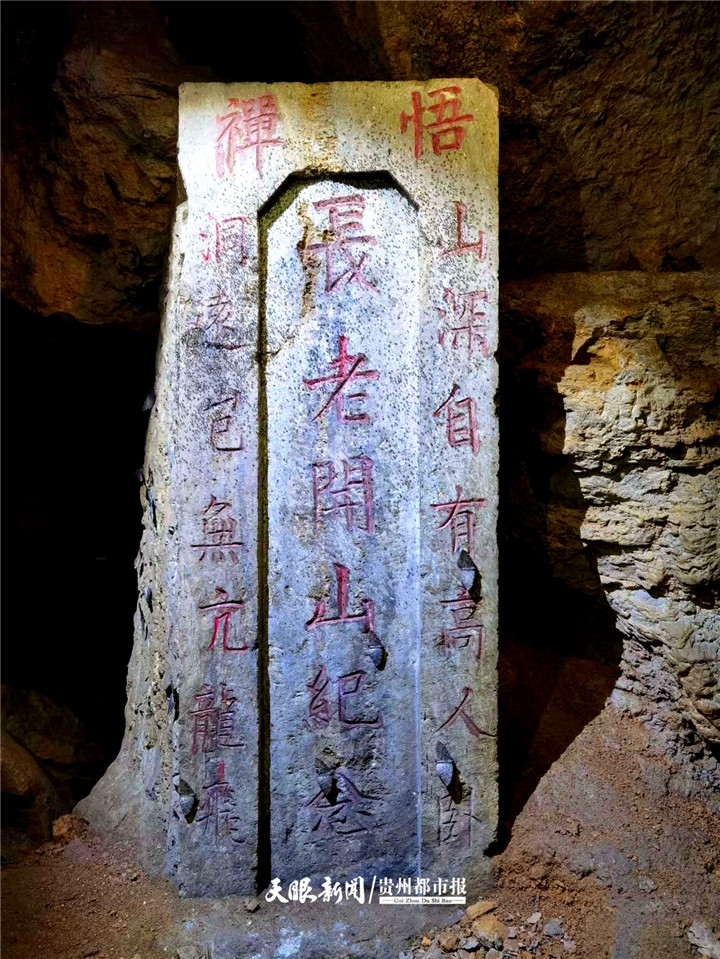 悟禪
山深自有高人卧
長老開山紀念
洞遠無亢龍飛
天眼新闻/贵州都市报
Gui Zhou Du Shi Bao